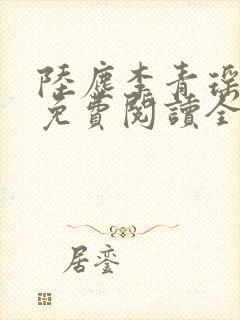 陸塵李青瑤
免費閱讀全
居鸞